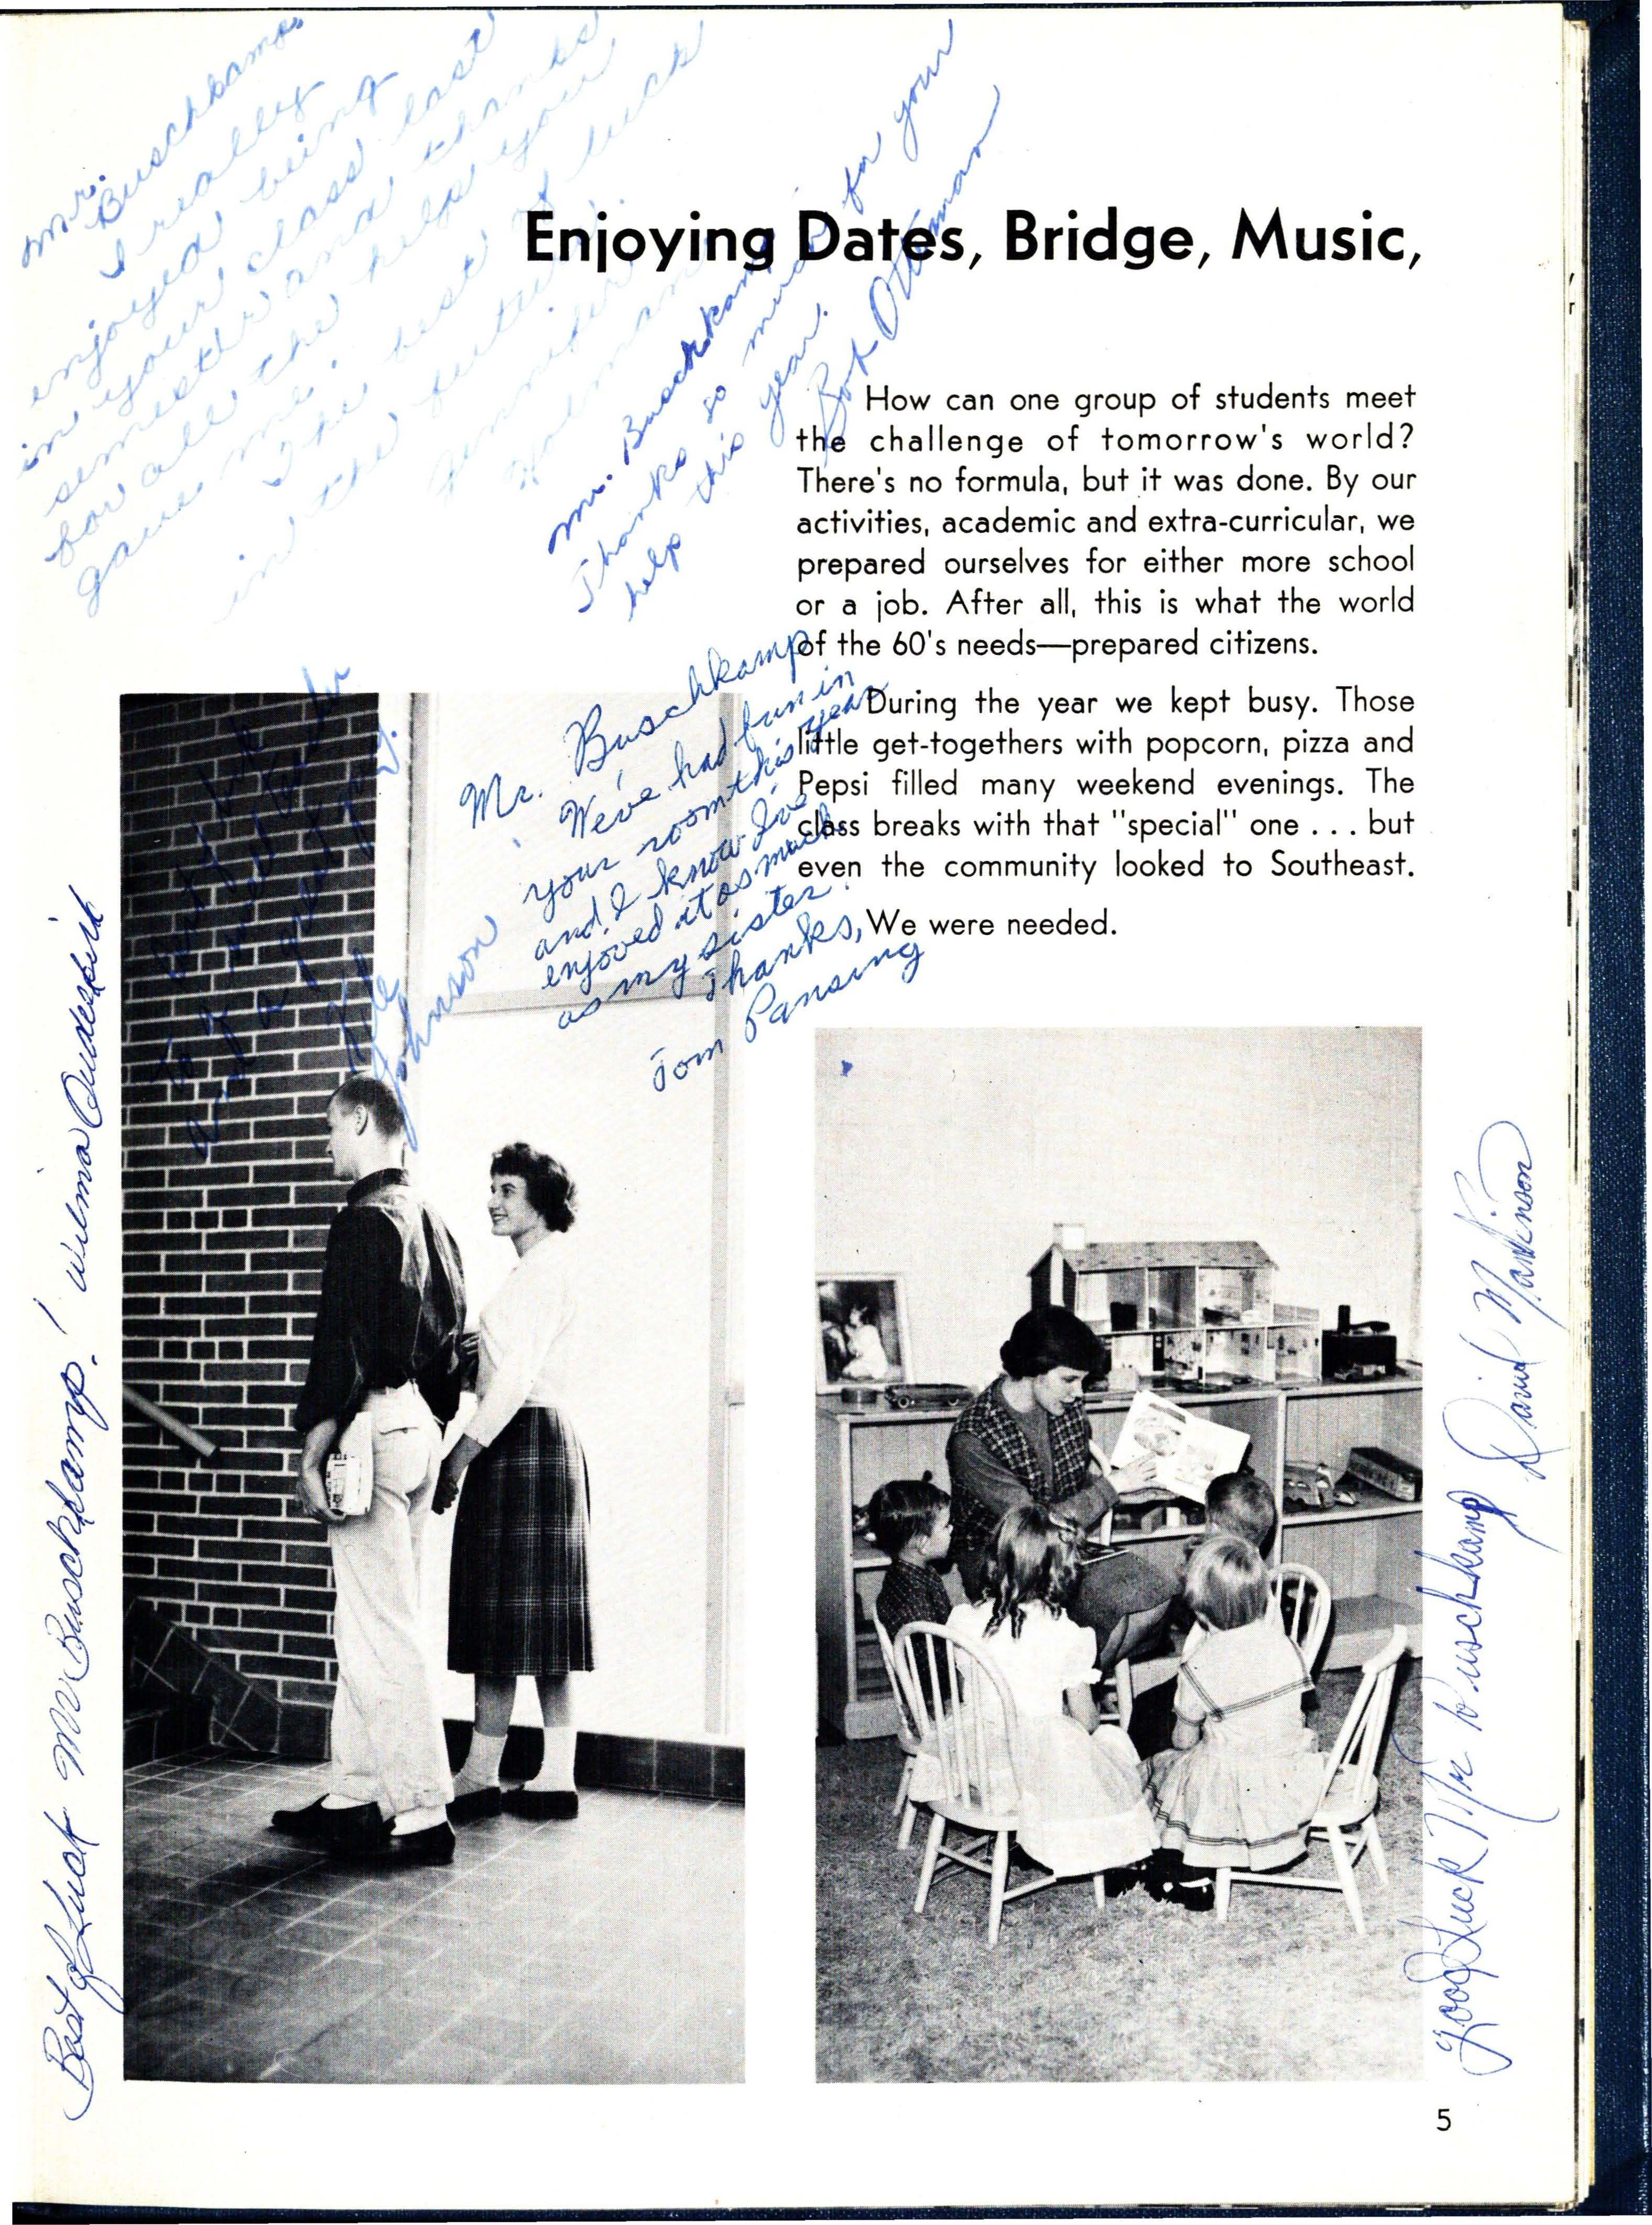 Mr.
Buschkamp
I really
enjoyed being
in your class last
semester and thanks
for all the help you
gave me.
The best of luck
in the future.
Jennifer
Enjoying Dates, Bridge, Music,
Mr. Buschkamp
Thanks so much for your
help this year.
Bob Ottoman
How can one group of students meet
the challenge of tomorrow's world?
There's no formula, but it was done. By our
activities, academic and extra-curricular, we
prepared ourselves for either more school
or a job. After all, this is what the world
of the 60's needs—prepared citizens.
During the year we kept busy. Those
little get-togethers with popcorn, pizza and
Pepsi filled many weekend evenings. The
class breaks with that "special" one . . . but
even the community looked to Southeast.
We were needed.
Mr. Buschkamp
We've had fun in
your room this year
and I know I've
enjoyed it as much
as my sister.
Thanks,
Tom Pansing
a great guy.
Johnson
Best of Luck Mr Buschkamp! Wilma
Good Luck Mr Buschkamp
David
5